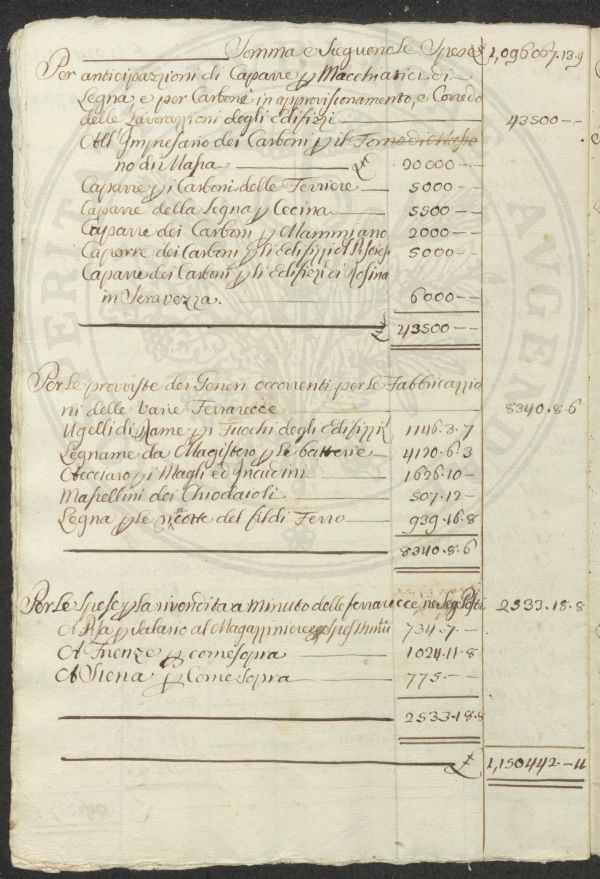 Somma e Sieguono le Spese £ 1,096067.13.9
Per anticipazzioni di Caparre p Macchiatici di
Legna, e per Carbone in approvisionamento, e Corredo
delle Lavorazzioni degli Edifizzi 43500 --
All' Impresario dei Carboni p il
no di Massa £ 20000 --
Caparre p i Carboni delle Ferriere 5000 --
Caparre della Legna p Cecina 5500 --
Caparre dei Carboni p Mammiano 2000 --
Caparre dei Carboni p gli Edifizzi 5000 --
Caparre dei Carboni p gli Edifizzi di Rosina
in Seravezza. 6000 --
£ 43500 --
Per Le provviste dei Generi occorrenti per le Fabbricazzio
ni delle varie Ferrarecce 8340.8.6
Ugelli di Rame p i Fuochi degli Edifizzi 1146.3.7
Legname da Magistero p le batterie 4120.6.3
Acciaro p i Magli ed Incudini 1626.10 -
Massellini dei Chiodaioli 507.12 -
Legna p le ricotte del fil di Ferro 939.16.8
8340.8.6
Per Le Spese p la rivendita a minuto delle ferrarecce ne Seg. Posti 2533.18.8
A Pisa p Salario al Magazziniere e Spese Minute 734.7.-
A Firenze p come sopra 1024.11.8
A Siena p Come Sopra 775.--
2533.18.8
£ 1,150442.-11